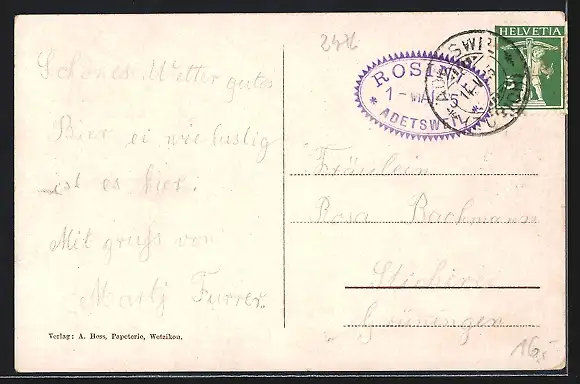 Schönes Wetter gutes
Bier ei wie lustig
ist es hier.
Mit gruss von
Martj Furrer.
Verlag: A. Hess, Papeterie, Wetzikon.
2476
ROSINLI
1 - MAI
ADETSWEIL
HELVETIA
5
Fräulein
Rosa Bachmann
Stickerin
Grüningen
16.-